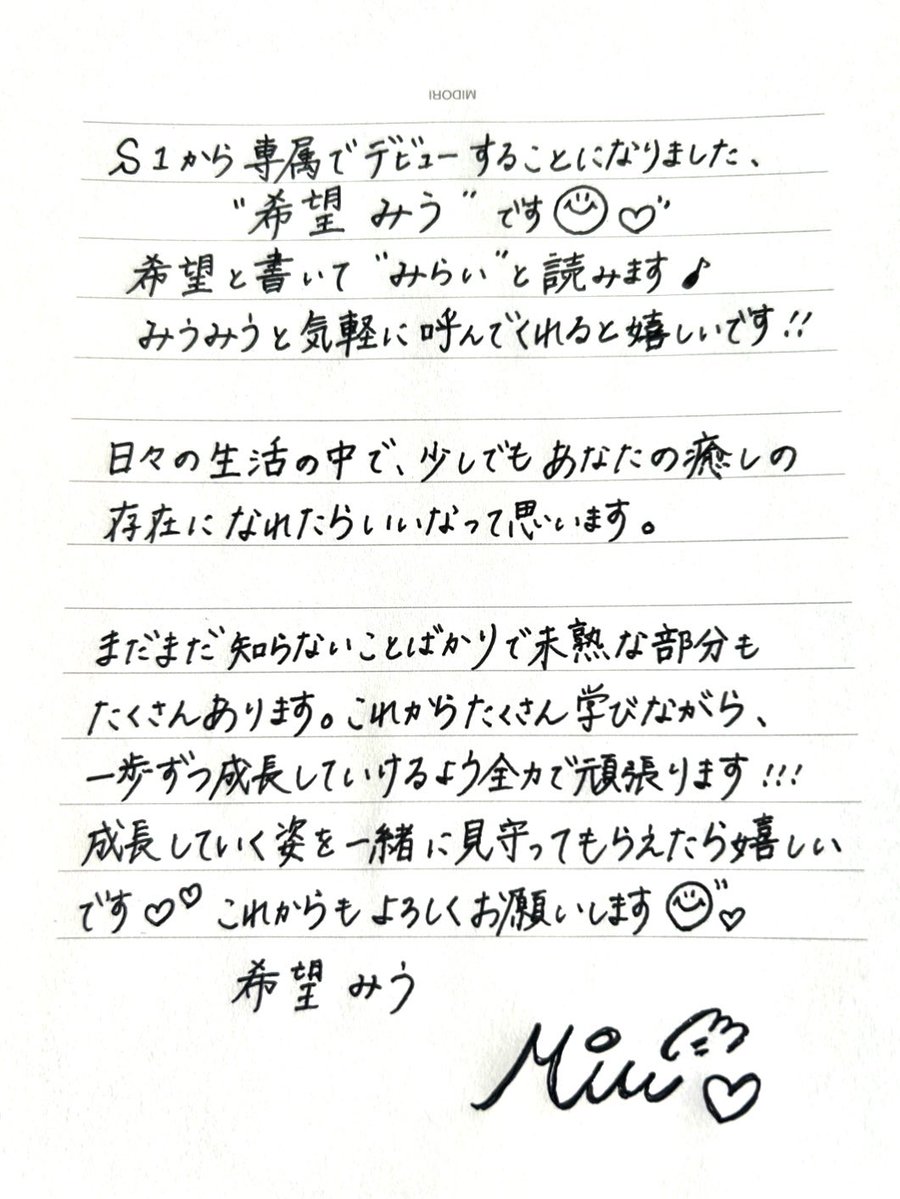 MIDORI
S1から専属でデビューすることになりました、
"希望 みう"です
希望と書いて"みらい"と読みます♪
みうみうと気軽に呼んでくれると嬉しいです!!
日々の生活の中で、少しでもあなたの癒しの
存在になれたらいいなって思います。
まだまだ知らないことばかりで未熟な部分も
たくさんあります。これからたくさん学びながら、
一歩ずつ成長していけるよう全力で頑張ります!!!
成長していく姿を一緒に見守ってもらえたら嬉しい
です♡♡ これからもよろしくお願いします
希望 みう
Miu